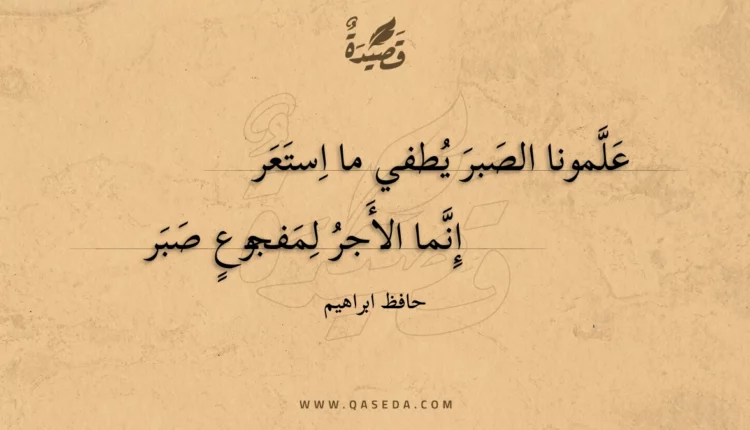 قَصِيدَةٌ
عَلَّمونا الصَبرَ يُطفي ما اِستَعَر
إِنَّما الأَجرُ لِمَفجوعٍ صَبَر
حافظ ابراهيم
WWW.QASEDA.COM